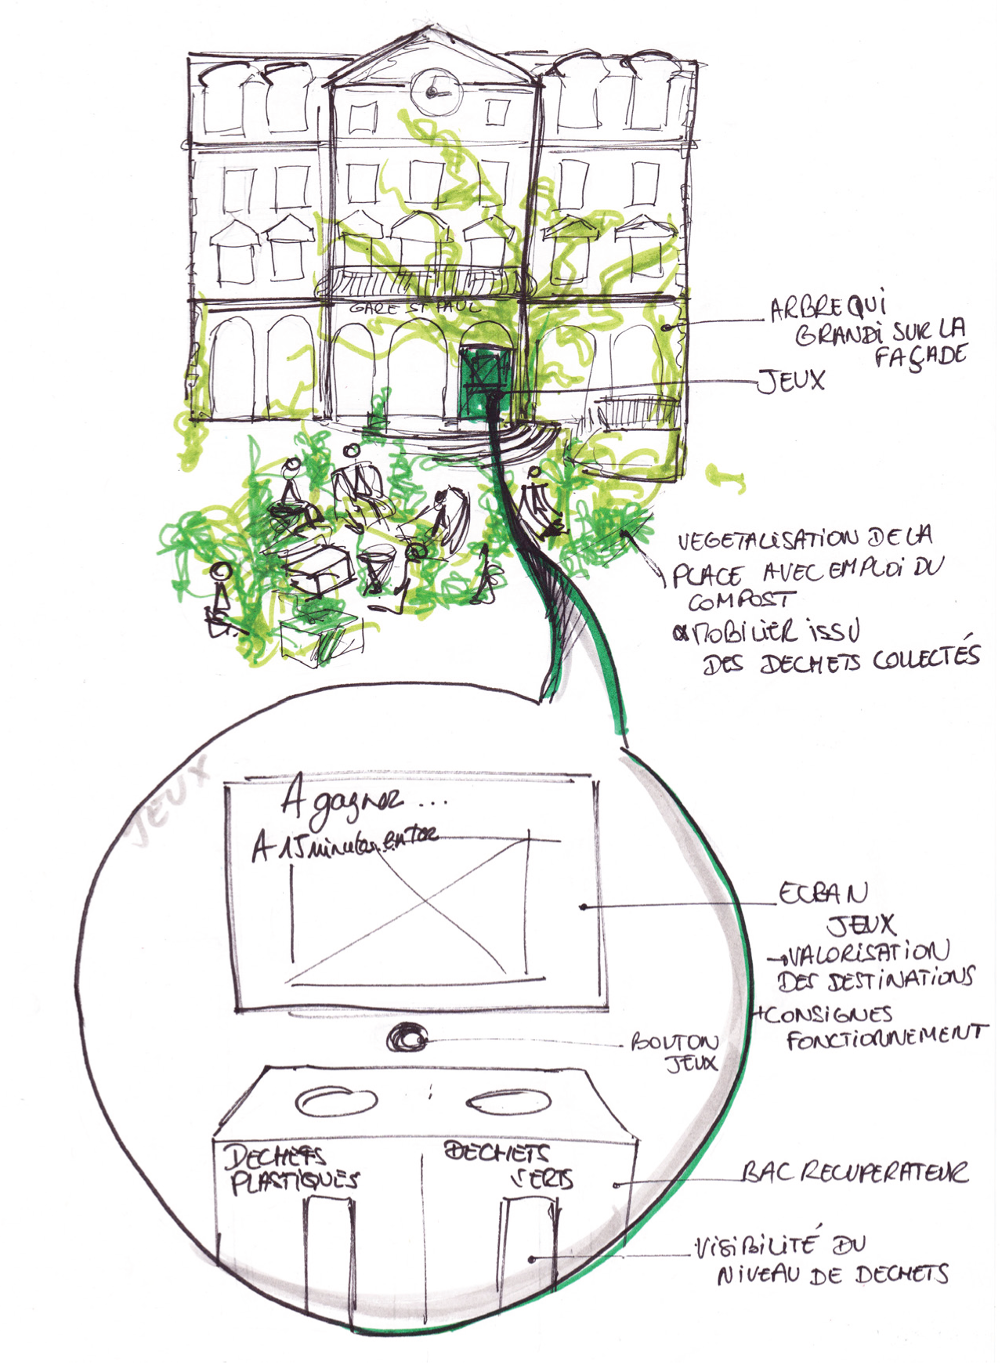 GARE ST PAUL
ARBRE QUI
GRANDI SUR LA
FAÇADE
JEUX
VEGETALISATION DE LA
PLACE AVEC EMPLOI DU
COMPOST
& MOBILIER ISSU
DES DECHETS COLLECTÉS
JEUX
A gagner ...
A 15 minutes en ter
ECRAN
JEUX
→ VALORISATION
DES DESTINATIONS
+ CONSIGNES
FONCTIONNEMENT
BOUTON
JEUX
DECHETS
PLASTIQUES
DECHETS
VERTS
BAC RECUPERATEUR
VISIBILITÉ DU
NIVEAU DE DECHETS